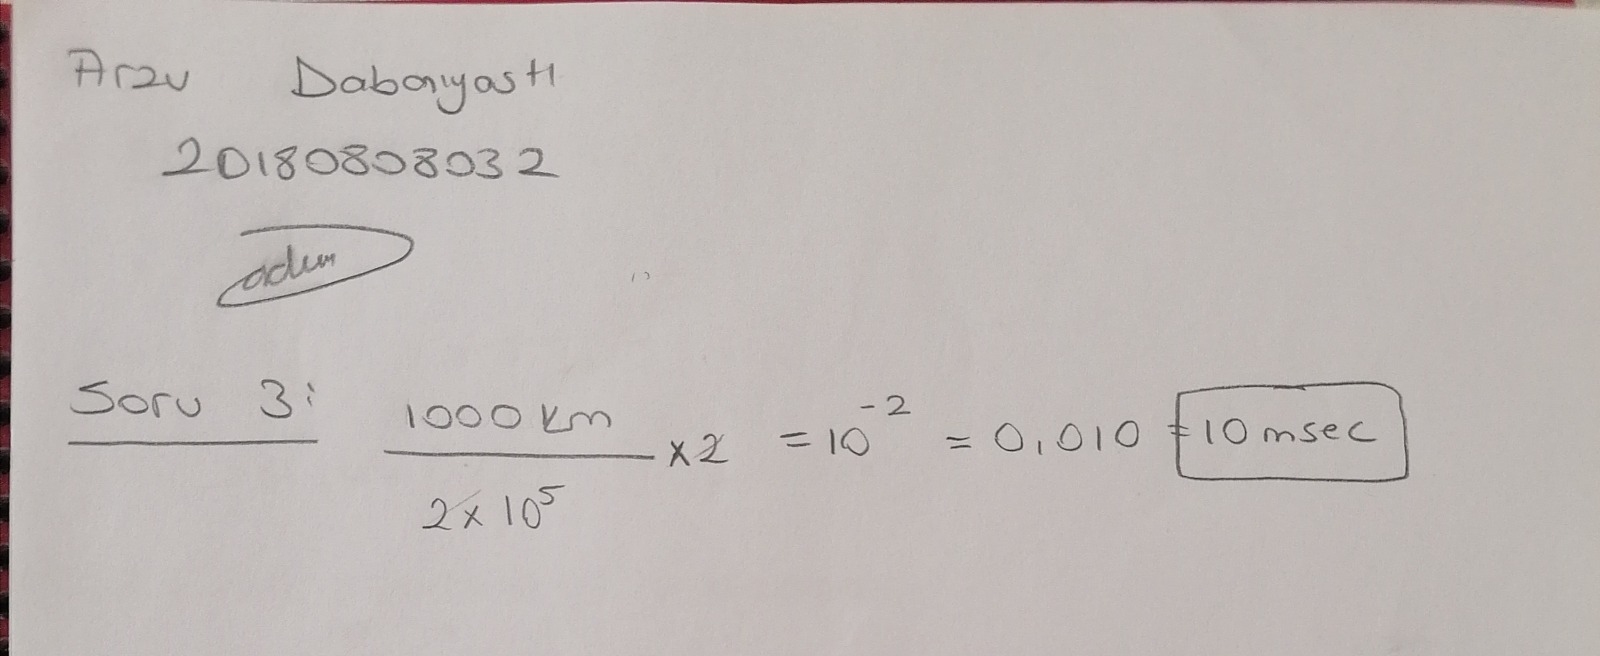 Arzu Dabanyastı
20180808032
Soru 3: 1000 km / 2 x 10⁵ x 2 = 10⁻² = 0,010 = 10 msec